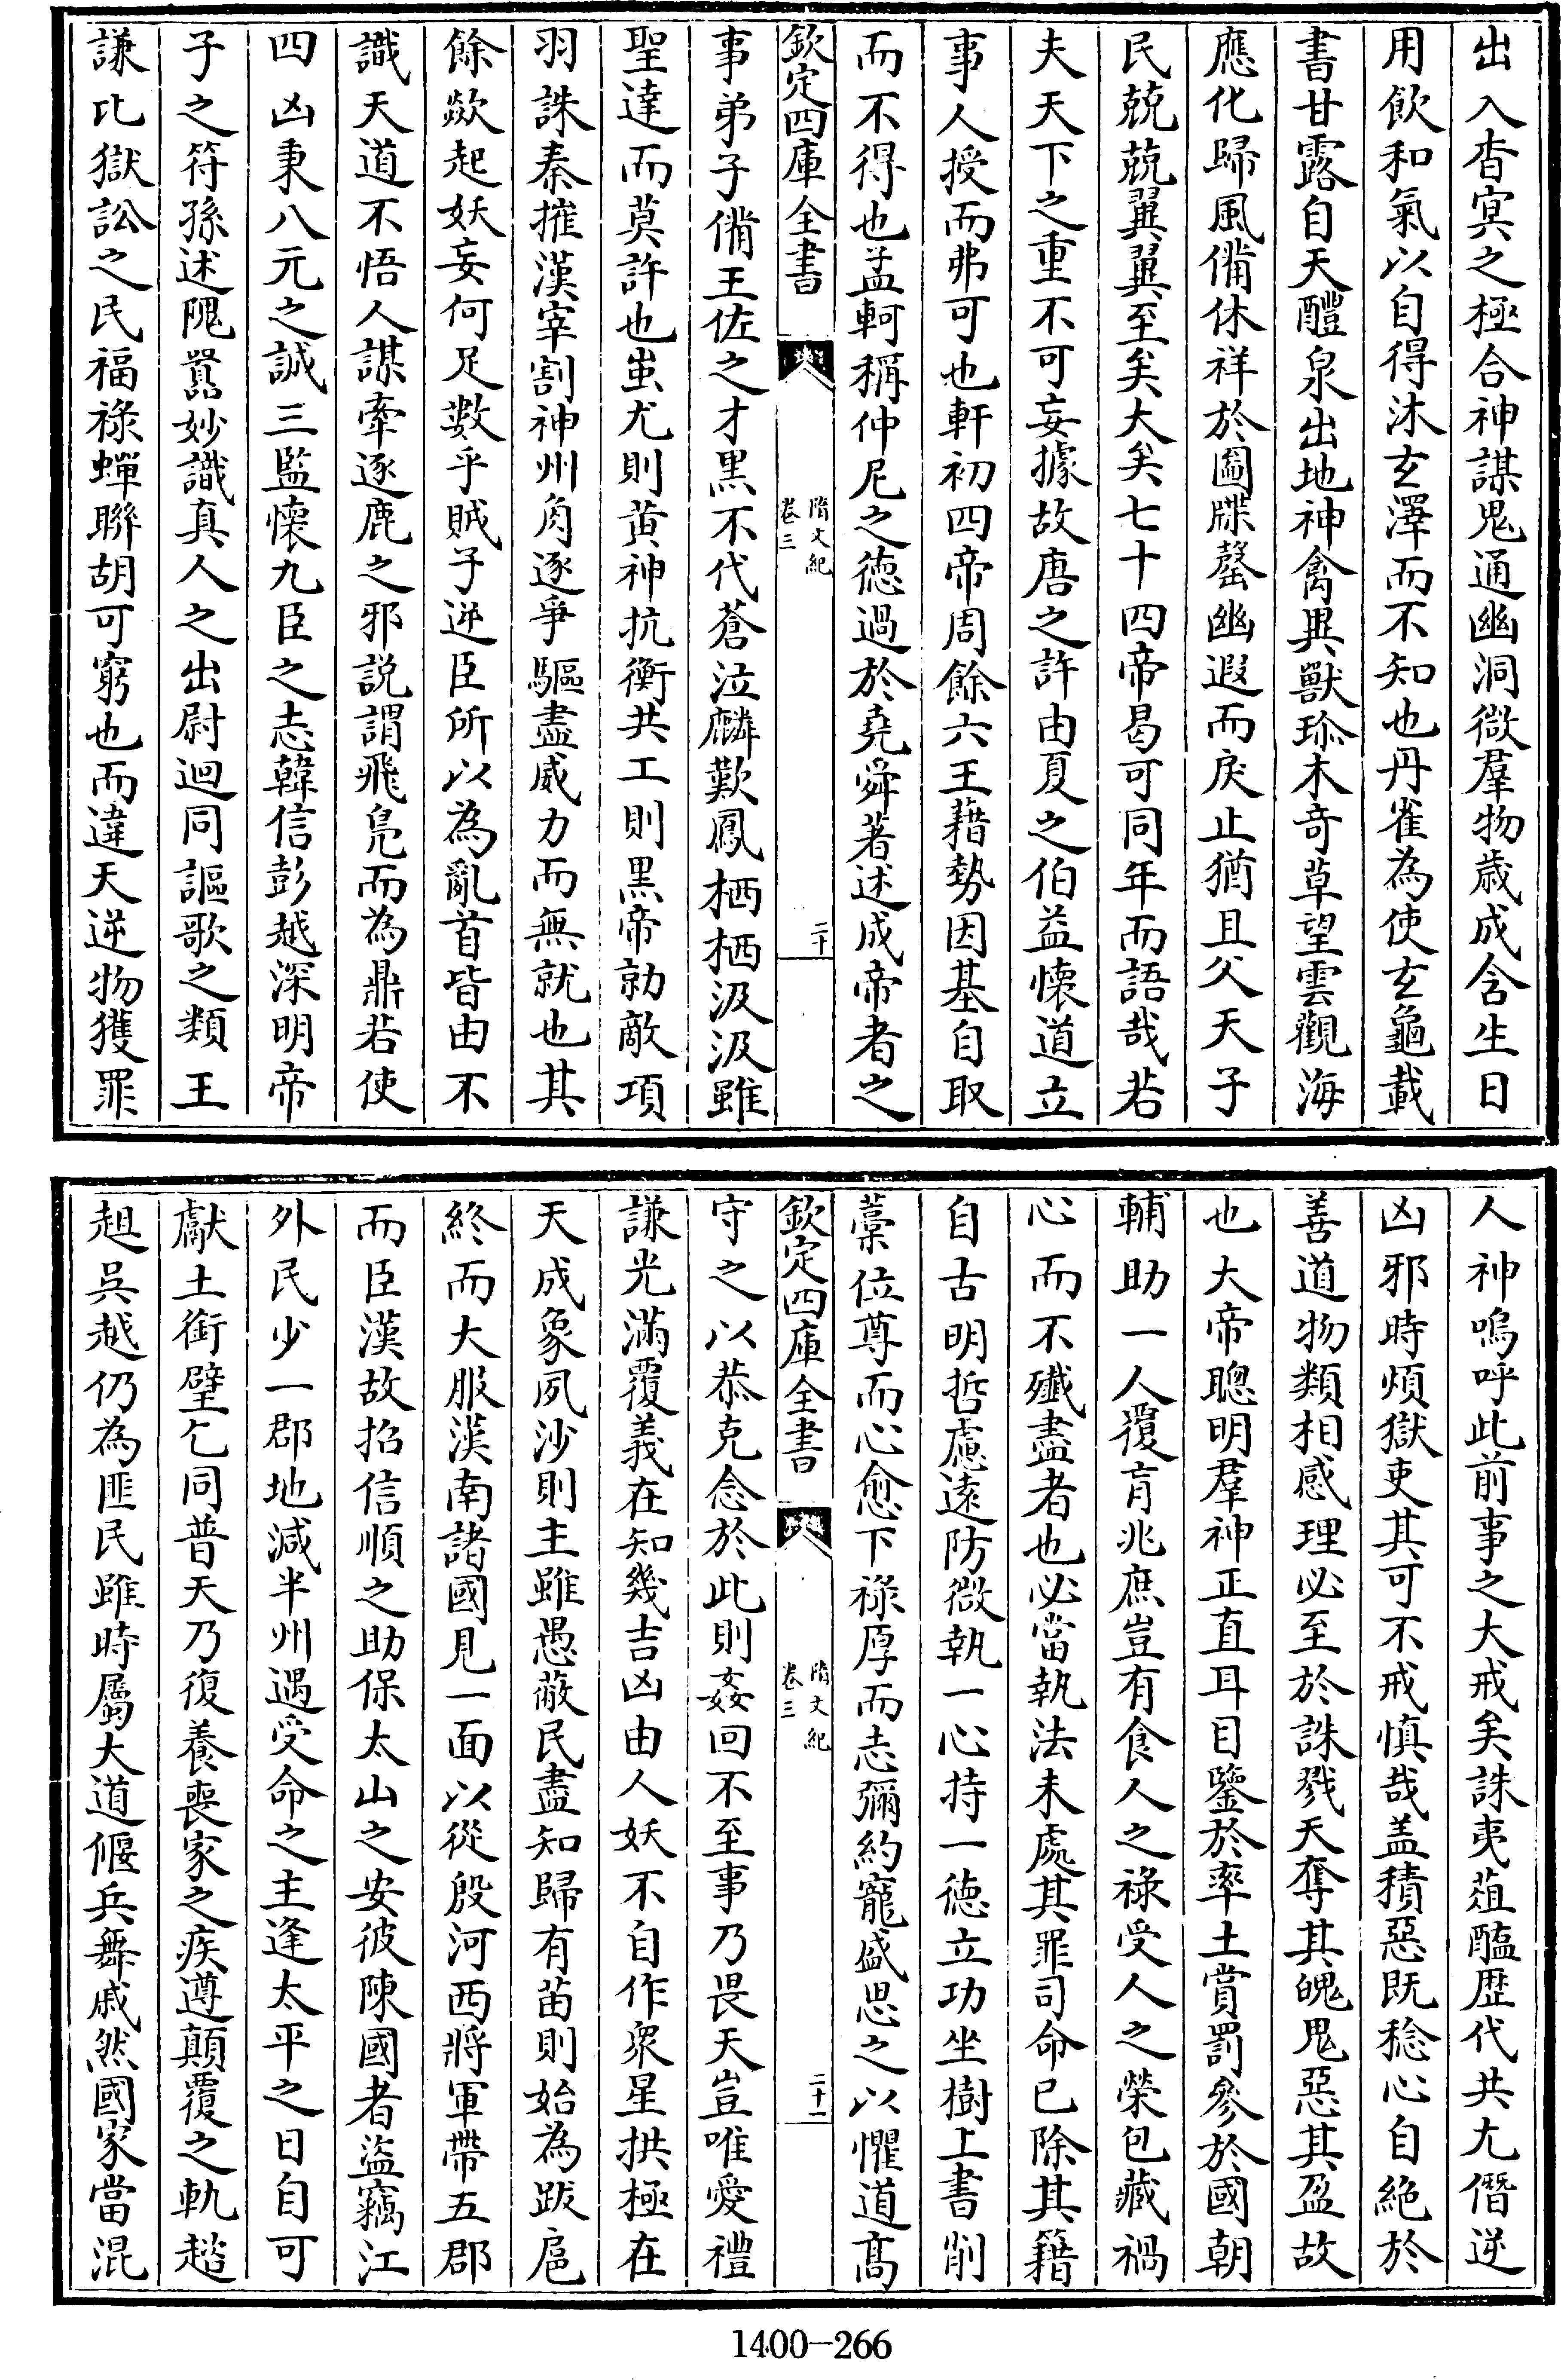 出入杳㝠之極合神謀鬼通幽洞微羣物歲成含生日
用飲和氣以自得沐玄澤而不知也丹雀為使玄龜載
書甘露自天醴泉出地神禽異獸珍木奇草望雲觀海
應化歸風備休祥於圖牒罄幽遐而戾止猶且父天子
民兢兢翼翼至矣大矣七十四帝曷可同年而語哉若
夫天下之重不可妄據故唐之許由夏之伯益懷道立
事人授而弗可也軒初四帝周餘六王藉勢因基自取
而不得也孟軻稱仲尼之德過於堯舜著述成帝者之
欽定四庫全書
隋文紀
卷三
二十
事弟子備王佐之才黑不代蒼泣麟歎鳳栖栖汲汲雖
聖達而莫許也蚩尤則黄神抗衡共工則黒帝勍敵項
羽誅秦摧漢宰割神州角逐爭驅盡威力而無就也其
餘歘起妖妄何足數乎賊子逆臣所以為亂首皆由不
識天道不悟人謀牽逐鹿之邪説謂飛鳬而為鼎若使
四凶秉八元之誠三監懷九臣之志韓信彭越深明帝
子之符孫述隗囂妙識真人之出尉迥同謳歌之類王
謙比獄訟之民福祿蟬聯胡可窮也而違天逆物獲罪
人神嗚呼此前事之大戒矣誅夷葅醢歴代共尤僭逆
凶邪時煩獄吏其可不戒慎哉盖積惡既稔心自絶於
善道物類相感理必至於誅戮天奪其魄鬼惡其盈故
也大帝聰明羣神正直耳目鑒於率土賞罰參於國朝
輔助一人覆育兆庶豈有食人之祿受人之榮包藏禍
心而不殲盡者也必當執法未處其罪司命已除其籍
自古明哲慮遠防微執一心持一德立功坐樹上書削
藁位尊而心愈下祿厚而志彌約寵盛思之以懼道髙
欽定四庫全書
隋文紀
卷三
二十一
守之以恭克念於此則姦回不至事乃畏天豈唯愛禮
謙光滿覆義在知幾吉凶由人妖不自作衆星拱極在
天成象夙沙則主雖愚蔽民盡知歸有苗則始為跋扈
終而大服漢南諸國見一面以從殷河西將軍帶五郡
而臣漢故招信順之助保太山之安彼陳國者盗竊江
外民少一郡地減半州遇受命之主逢太平之日自可
獻土銜璧乞同普天乃復養喪家之疾遵顛覆之軌趑
趄吳越仍為匪民雖時屬大道偃兵舞戚然國家當混
1400-266